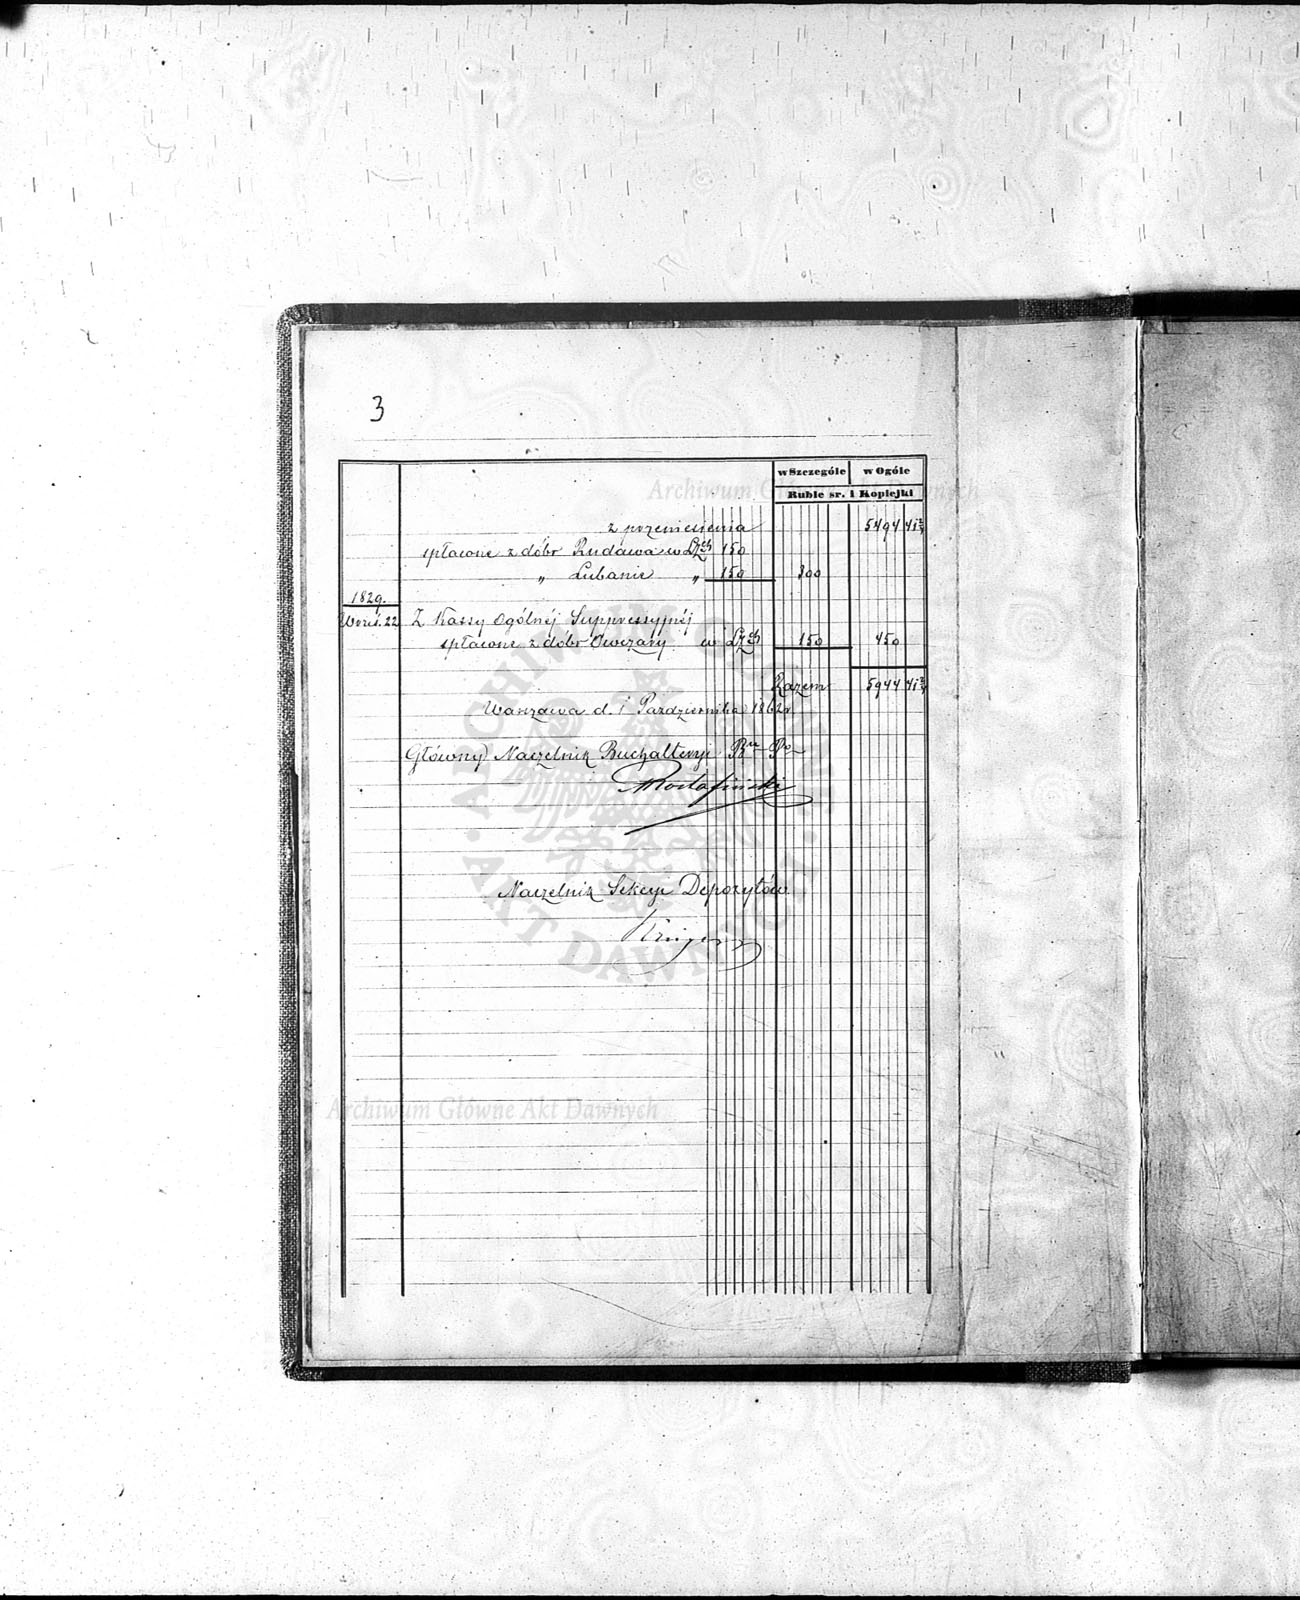 3
w Szczególe w Ogóle
Ruble sr. i Kopiejki
z przeniesienia 5494 41
spłacone z dóbr Rudawa w 150
„ Lubanie „ 150 300
1829.
Wrześ. 22 Z Kassy Ogólnéj Suppressyjnéj
spłacone z dóbr Owczary w 150 450
Razem 5944 41
Warszawa d. 1 Października 1862 r.
Główny Naczelnik Buchalteryi
Naczelnik Sekcyi Depozytów
Archiwum Główne Akt Dawnych
ARCHIWUM GŁÓWNE AKT DAWNYCH
Archiwum Główne Akt Dawnych